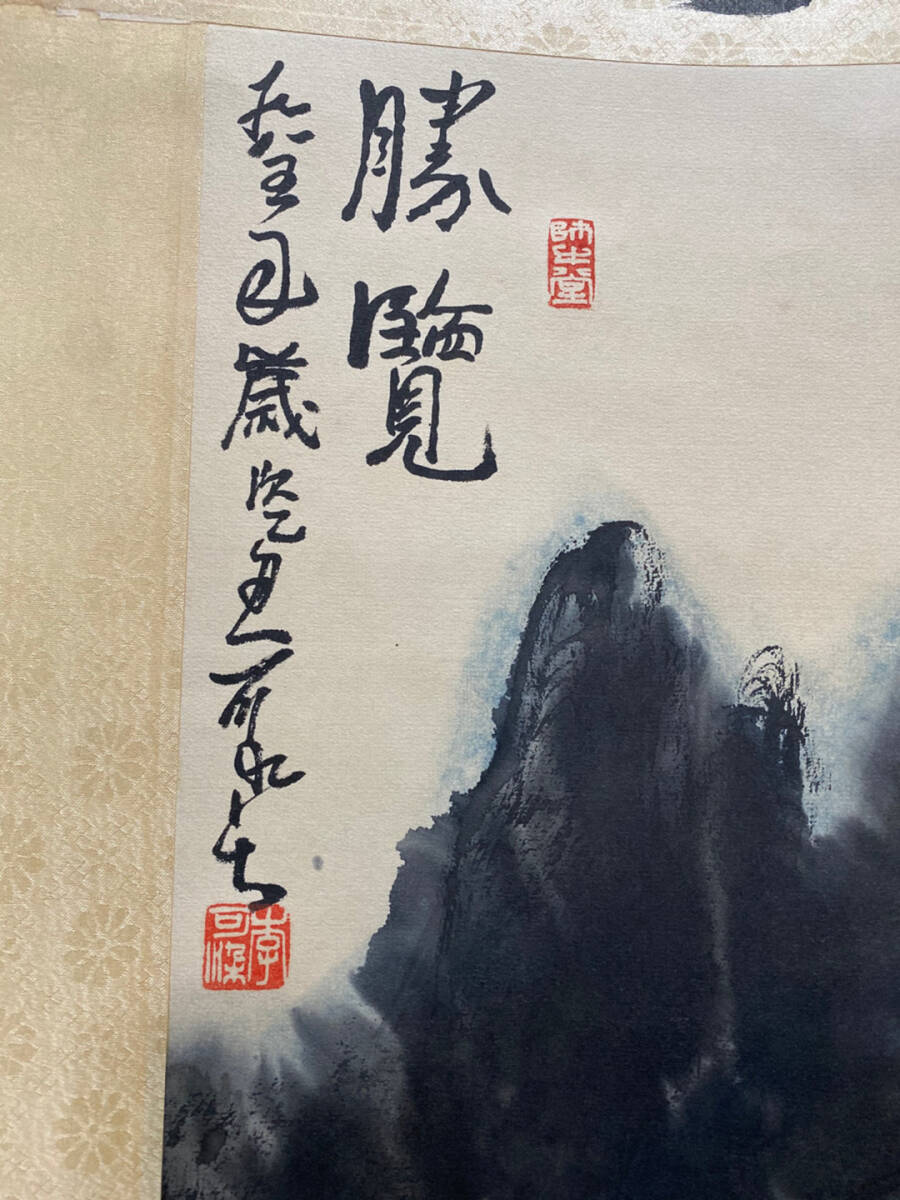 師牛堂
勝覽
歲次乙丑可染
李可染